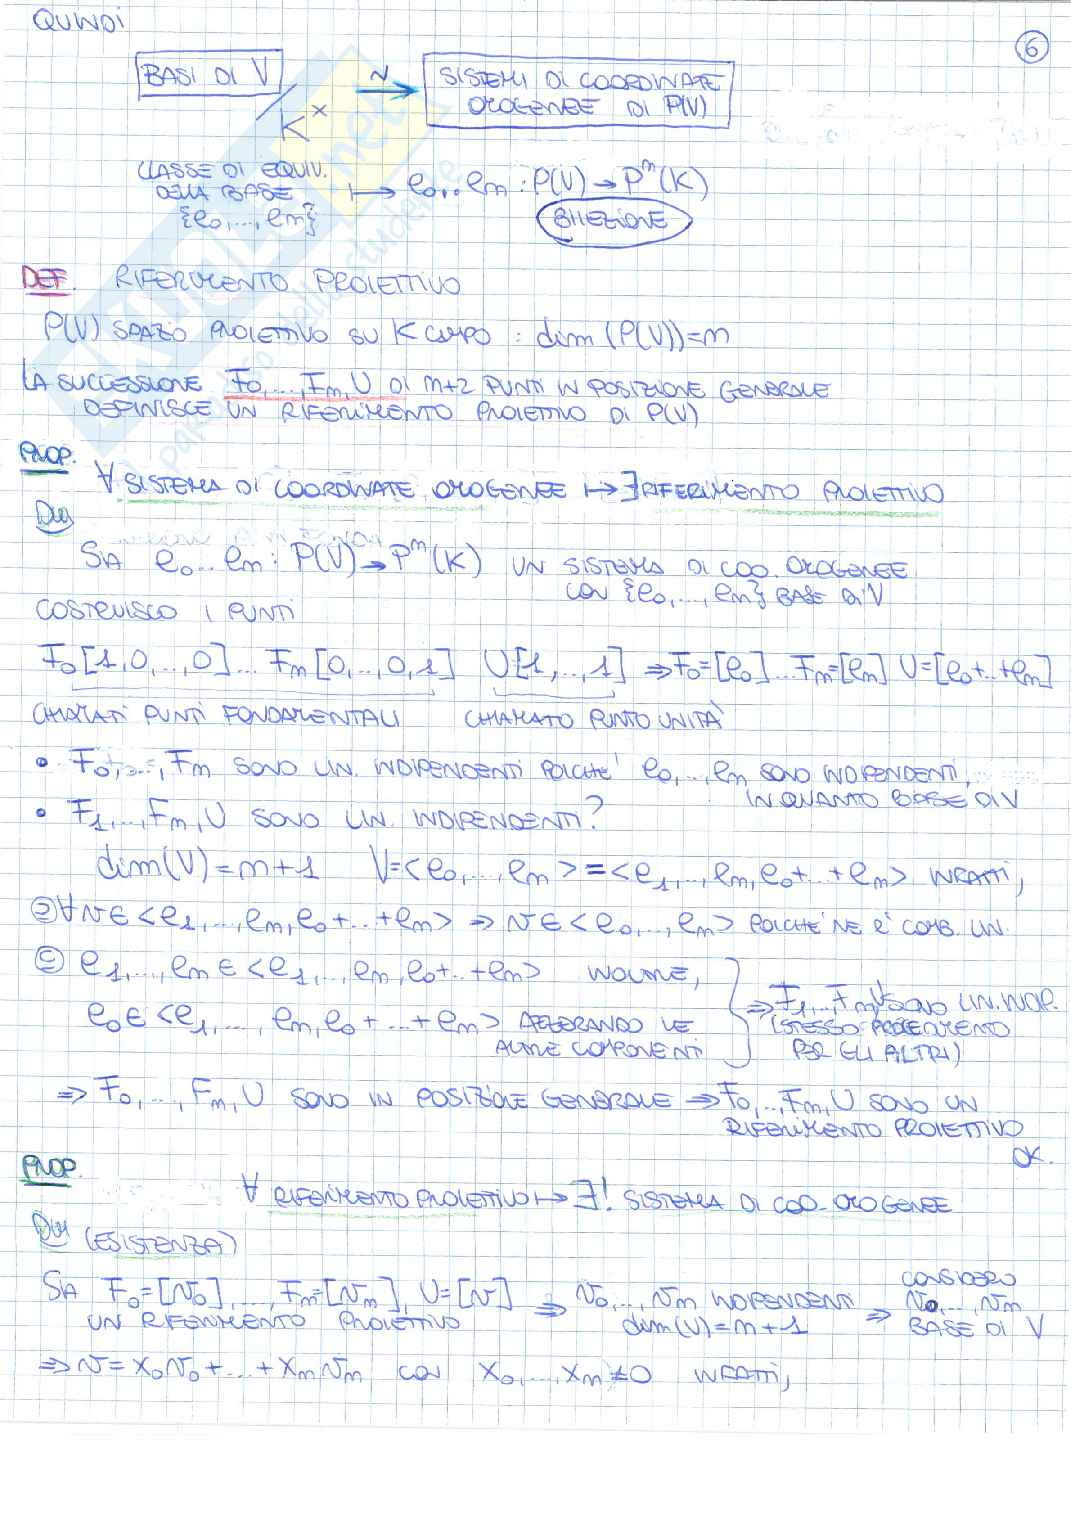 QUINDI
6
BASI DI V / K^× ~→ SISTEMI DI COORDINATE
OMOGENEE DI P(V)
CLASSE DI EQUIV.
DELLA BASE
{e₀,...,eₙ} ↦ e₀..eₙ : P(V) → Pⁿ(K)
BIIEZIONE
DEF. RIFERIMENTO PROIETTIVO
P(V) SPAZIO PROIETTIVO SU K CAMPO : dim (P(V))=n
LA SUCCESSIONE F₀,...,Fₙ,U DI n+2 PUNTI IN POSIZIONE GENERALE
DEFINISCE UN RIFERIMENTO PROIETTIVO DI P(V)
PROP.
∀ SISTEMA DI COORDINATE OMOGENEE ↦ ∃ RIFERIMENTO PROIETTIVO
DIM
SIA e₀..eₙ : P(V) → Pⁿ(K) UN SISTEMA DI COO. OMOGENEE
CON {e₀,...,eₙ} BASE DI V
COSTRUISCO I PUNTI
F₀[1,0,..,0]... Fₙ[0,..,0,1] U[1,..,1] ⇒ F₀=[e₀]...Fₙ=[eₙ] U=[e₀+..+eₙ]
CHIAMATI PUNTI FONDAMENTALI CHIAMATO PUNTO UNITÀ
• F₀,...,Fₙ SONO LIN. INDIPENDENTI POICHE' e₀,..,eₙ SONO INDIPENDENTI,
IN QUANTO BASE DI V
• F₁,...,Fₙ,U SONO LIN. INDIPENDENTI?
dim(V)=n+1 V=<e₀,...,eₙ>=<e₁,...,eₙ,e₀+..+eₙ> INFATTI,
⊇ ∀v∈<e₁,...,eₙ,e₀+..+eₙ> ⇒ v∈<e₀,..,eₙ> POICHE' NE E' COMB. LIN.
⊆ e₁,...,eₙ∈<e₁,...,eₙ,e₀+..+eₙ> INOLTRE,
e₀∈<e₁,...,eₙ,e₀+...+eₙ> AZZERANDO LE
ALTRE COMPONENTI
⇒ F₁,..,Fₙ,U SONO LIN. INDIP.
(STESSO PROCEDIMENTO
PER GLI ALTRI)
⇒ F₀,...,Fₙ,U SONO IN POSIZIONE GENERALE ⇒ F₀,..,Fₙ,U SONO UN
RIFERIMENTO PROIETTIVO
OK.
PROP.
∀ RIFERIMENTO PROIETTIVO ↦ ∃! SISTEMA DI COO. OMOGENEE
DIM (ESISTENZA)
SIA F₀=[v₀],...,Fₙ=[vₙ], U=[v] ⇒ v₀,...,vₙ INDIPENDENTI ⇒ CONSIDERO
UN RIFERIMENTO PROIETTIVO dim(V)=n+1 v₀,..,vₙ
BASE DI V
⇒ v=x₀v₀+...+xₙvₙ CON x₀,...,xₙ≠0 INFATTI,